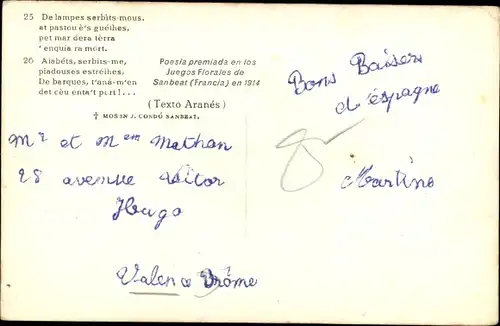 25 De lampes serbìts-mous,
at pastou ë's guéihes,
pet mar dera tèrra
'enquia ra mort.
26 Alabéts, serbits-me,
piadouses estréihes,
De barques, t'aná-m'en
det cèu enta't port!...
Poesía premiada en los
Juegos Florales de
Sanbeat (Francia) en 1914
(Texto Aranés)
† MOSEN J. CONDÓ SANBEAT.
Bons Baisers
d'éspagne
Martine
Mr et Mem Mathon
28 avenue Victor
Hugo
Valence Drôme